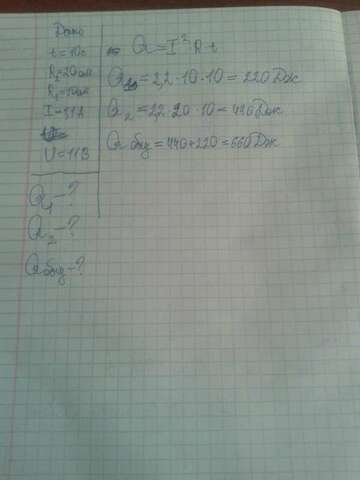 Дано
t=10c
R₁=20 ом
I=1,1 А
U=11В
Q₁-?
Q₂-?
Q общ-?
Q=I²Rt
Q₁=2,2·10·10=220 Дж
Q₂=2,2·20·10=440 Дж
Q общ=440+220=660 Дж